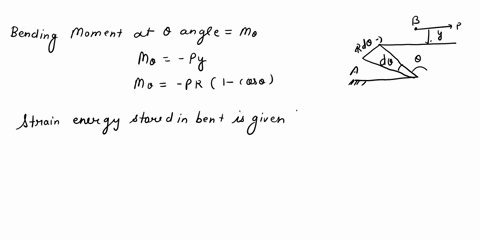 Bending Moment at θ angle = Mθ
Mθ = -Py
Mθ = -PR (1 - cosθ)
Strain energy stored in bent is given
B
P
y
Rdθ
dθ
θ
A